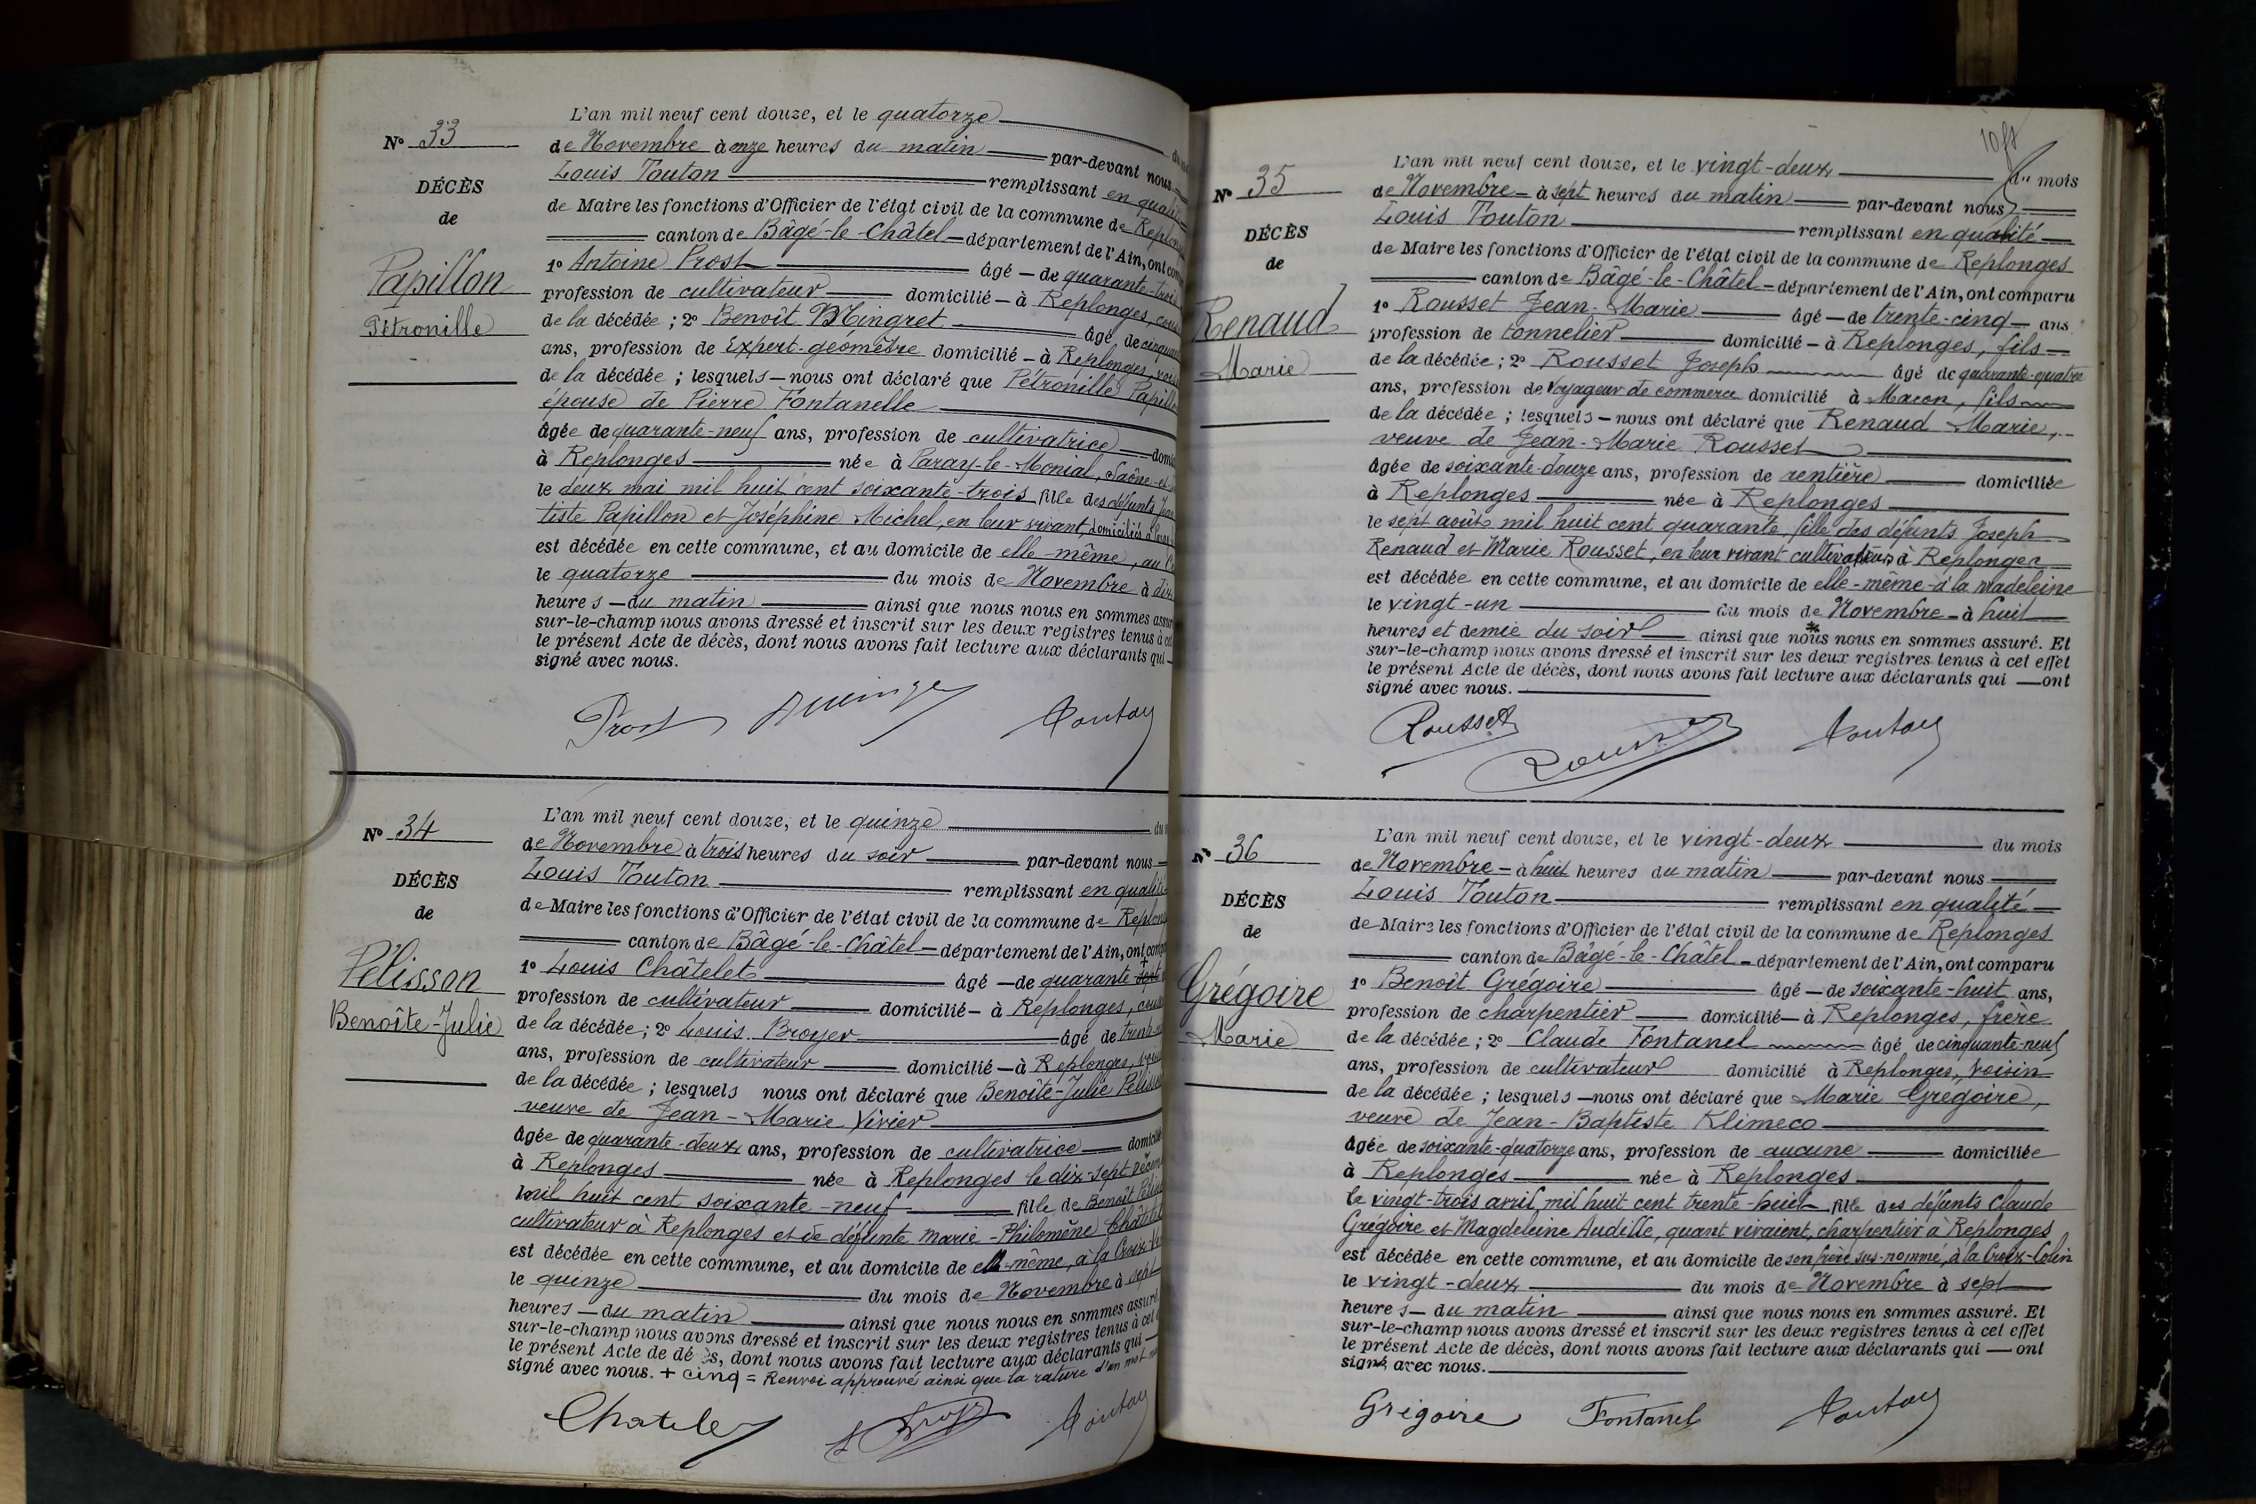 L'an mil neuf cent douze, et le quatorze
N° 33
de Novembre à onze heures du matin par-devant nous
Louis Touton remplissant en qualité
DÉCÈS
de Maire les fonctions d'Officier de l'état civil de la commune de
de
canton de Bâgé-le-Châtel département de l'Ain, ont
1° Antoine Prost âgé de quarante-trois
Papillon
profession de cultivateur domicilié à Replonges,
Pétronille
de la décédée ; 2° Benoît Mingret âgé de
ans, profession de Expert-géomètre domicilié à Replonges,
de la décédée ; lesquels nous ont déclaré que Pétronille
épouse de Pierre Fontanelle
âgée de quarante-neuf ans, profession de cultivatrice
à Replonges née à Paray-le-Monial, Saône-et
le deux mai mil huit cent soixante-trois fille des défunts
tiste Papillon et Joséphine Michel, en leur vivant, domiciliés à
est décédée en cette commune, et au domicile de elle-même, au
le quatorze du mois de Novembre à dix
heures du matin ainsi que nous nous en sommes
sur-le-champ nous avons dressé et inscrit sur les deux registres tenus à
le présent Acte de décès, dont nous avons fait lecture aux déclarants qui
signé avec nous.
Prost Touton
L'an mil neuf cent douze, et le quinze
N° 34
de Novembre à trois heures du soir par-devant nous
Louis Touton remplissant en qualité
DÉCÈS
de Maire les fonctions d'Officier de l'état civil de la commune de
de
canton de Bâgé-le-Châtel département de l'Ain, ont
1° Louis Châtelet âgé de quarante
Pélisson
profession de cultivateur domicilié à Replonges,
Benoîte-Julie
de la décédée ; 2° Louis Broyer âgé de
ans, profession de cultivateur domicilié à Replonges,
de la décédée ; lesquels nous ont déclaré que Benoîte-Julie
veuve de Jean-Marie Vivier
âgée de quarante-deux ans, profession de cultivatrice
à Replonges née à Replonges le dix-sept
mil huit cent soixante-neuf fille de Benoît
cultivateur à Replonges et de défunte Marie-Philomène
est décédée en cette commune, et au domicile de elle-même, à la
le quinze du mois de Novembre à sept
heures du matin ainsi que nous nous en sommes assuré
sur-le-champ nous avons dressé et inscrit sur les deux registres tenus à cet
le présent Acte de décès, dont nous avons fait lecture aux déclarants qui
signé avec nous. + cinq = Renvoi approuvé ainsi que la rature d'un mot
Chatelet Touton
L'an mil neuf cent douze, et le vingt-deux du mois
N° 35
de Novembre à sept heures du matin par-devant nous
Louis Touton remplissant en qualité
DÉCÈS
de Maire les fonctions d'Officier de l'état civil de la commune de Replonges
de
canton de Bâgé-le-Châtel département de l'Ain, ont comparu
1° Rousset Jean-Marie âgé de trente-cinq ans
Renaud
profession de tonnelier domicilié à Replonges, fils
Marie
de la décédée ; 2° Rousset Joseph âgé de quarante-quatre
ans, profession de voyageur de commerce domicilié à Macon, fils
de la décédée ; lesquels nous ont déclaré que Renaud Marie,
veuve de Jean-Marie Rousset
âgée de soixante-douze ans, profession de rentière domiciliée
à Replonges née à Replonges
le sept août mil huit cent quarante, fille des défunts Joseph
Renaud et Marie Rousset, en leur vivant cultivateurs à Replonges
est décédée en cette commune, et au domicile de elle-même à la Madeleine
le vingt-un du mois de Novembre à huit
heures et demie du soir ainsi que nous nous en sommes assuré. Et
sur-le-champ nous avons dressé et inscrit sur les deux registres tenus à cet effet
le présent Acte de décès, dont nous avons fait lecture aux déclarants qui ont
signé avec nous.
Rousset Rousset Touton
L'an mil neuf cent douze, et le vingt-deux du mois
N° 36
de Novembre à huit heures du matin par-devant nous
Louis Touton remplissant en qualité
DÉCÈS
de Maire les fonctions d'Officier de l'état civil de la commune de Replonges
de
canton de Bâgé-le-Châtel département de l'Ain, ont comparu
1° Benoît Grégoire âgé de soixante-huit ans,
Grégoire
profession de charpentier domicilié à Replonges, frère
Marie
de la décédée ; 2° Claude Fontanel âgé de cinquante-neuf
ans, profession de cultivateur domicilié à Replonges, voisin
de la décédée ; lesquels nous ont déclaré que Marie Grégoire,
veuve de Jean-Baptiste Klimeco
âgée de soixante-quatorze ans, profession de aucune domiciliée
à Replonges née à Replonges
le vingt-trois avril mil huit cent trente-huit fille des défunts Claude
Grégoire et Magdeleine Audille, quant vivaient, charpentier à Replonges
est décédée en cette commune, et au domicile de son frère sus-nommé, à la Croix-Colin
le vingt-deux du mois de Novembre à sept
heures du matin ainsi que nous nous en sommes assuré. Et
sur-le-champ nous avons dressé et inscrit sur les deux registres tenus à cet effet
le présent Acte de décès, dont nous avons fait lecture aux déclarants qui ont
signé avec nous.
Grégoire Fontanel Touton